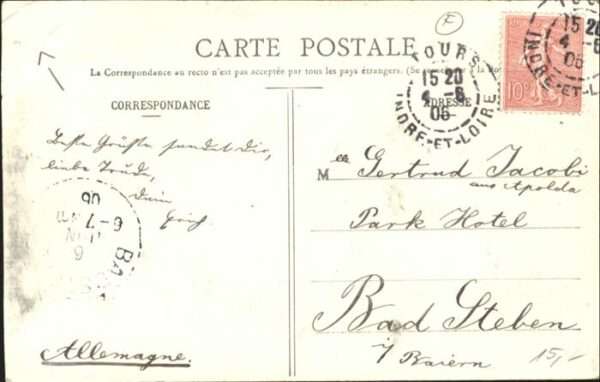 CARTE POSTALE
La Correspondance au recto n'est pas acceptée par tous les pays étrangers. (Se
CORRESPONDANCE
ADRESSE
TOURS
15 20
4 - 6
06
INDRE-ET-LOIRE
10c
15 20
4 -6
06
INDRE-ET-L
F
Beste Grüße sendet Dir,
liebe Trude,
Dein
Mlle Gertrud Jacobi
aus Apolda
Park Hotel
Bad Steben
i/ Baiern
Allemagne.
6-7
06
BA
15,-